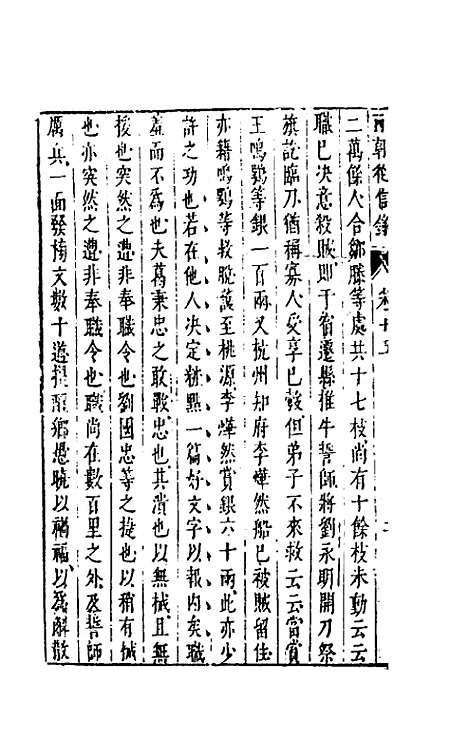 兩朝從信錄 卷十五 二
二萬餘人合鄒滕等處共十七枝尚有十餘枝未動云云
職已決意殺賊即于宿遷縣推牛誓師將劉永明開刀祭
旗訖臨刀猶稱寡人受享已彀但弟子不來救云云當賞
王鳴鶚等銀一百兩又杭州知府李燁然船已被賊留住
亦籍鳴鶚等救脫護至桃源李燁然賞銀六十兩此亦少
許之功也若在他人決定粧點一篇好文字以報内矣職
羞而不為也夫葛秉忠之敢戰忠也其潰也以無械且無
後也突然之遭非奉職令也劉國忠等之捷也以稍有械
也亦突然之遭非奉職令也職尚在數百里之外及誓師
厲兵一面發榜文數十道提醒鄉愚曉以禍福以為解散